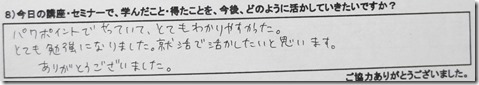 8)今回の講座・セミナーで、学んだこと・得たことを、今後、どのように活かしていきたいですか?
パワポイントでやっていて、とてもわかりやすかった。
とても勉強になりました。就活で活かしたいと思います。
ありがとうございました。
ご協力ありがとうございました。